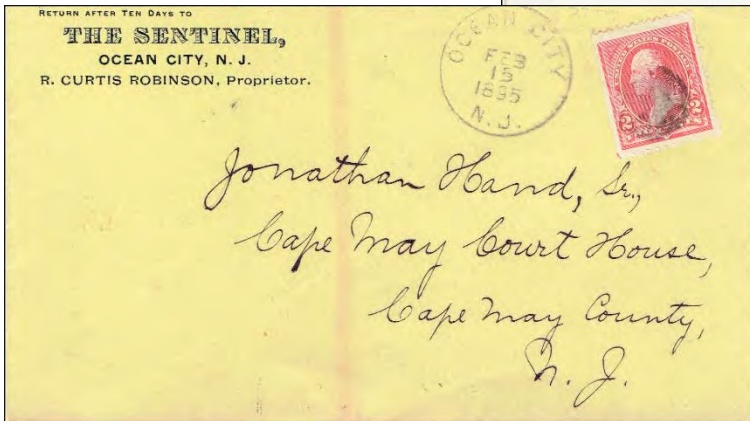 RETURN AFTER TEN DAYS TO
THE SENTINEL,
OCEAN CITY, N. J.
R. CURTIS ROBINSON, Proprietor.
OCEAN CITY
FEB
15
1895
N. J.
2 2
Jonathan Hand, Sr.,
Cape May Court House,
Cape May County,
N. J.